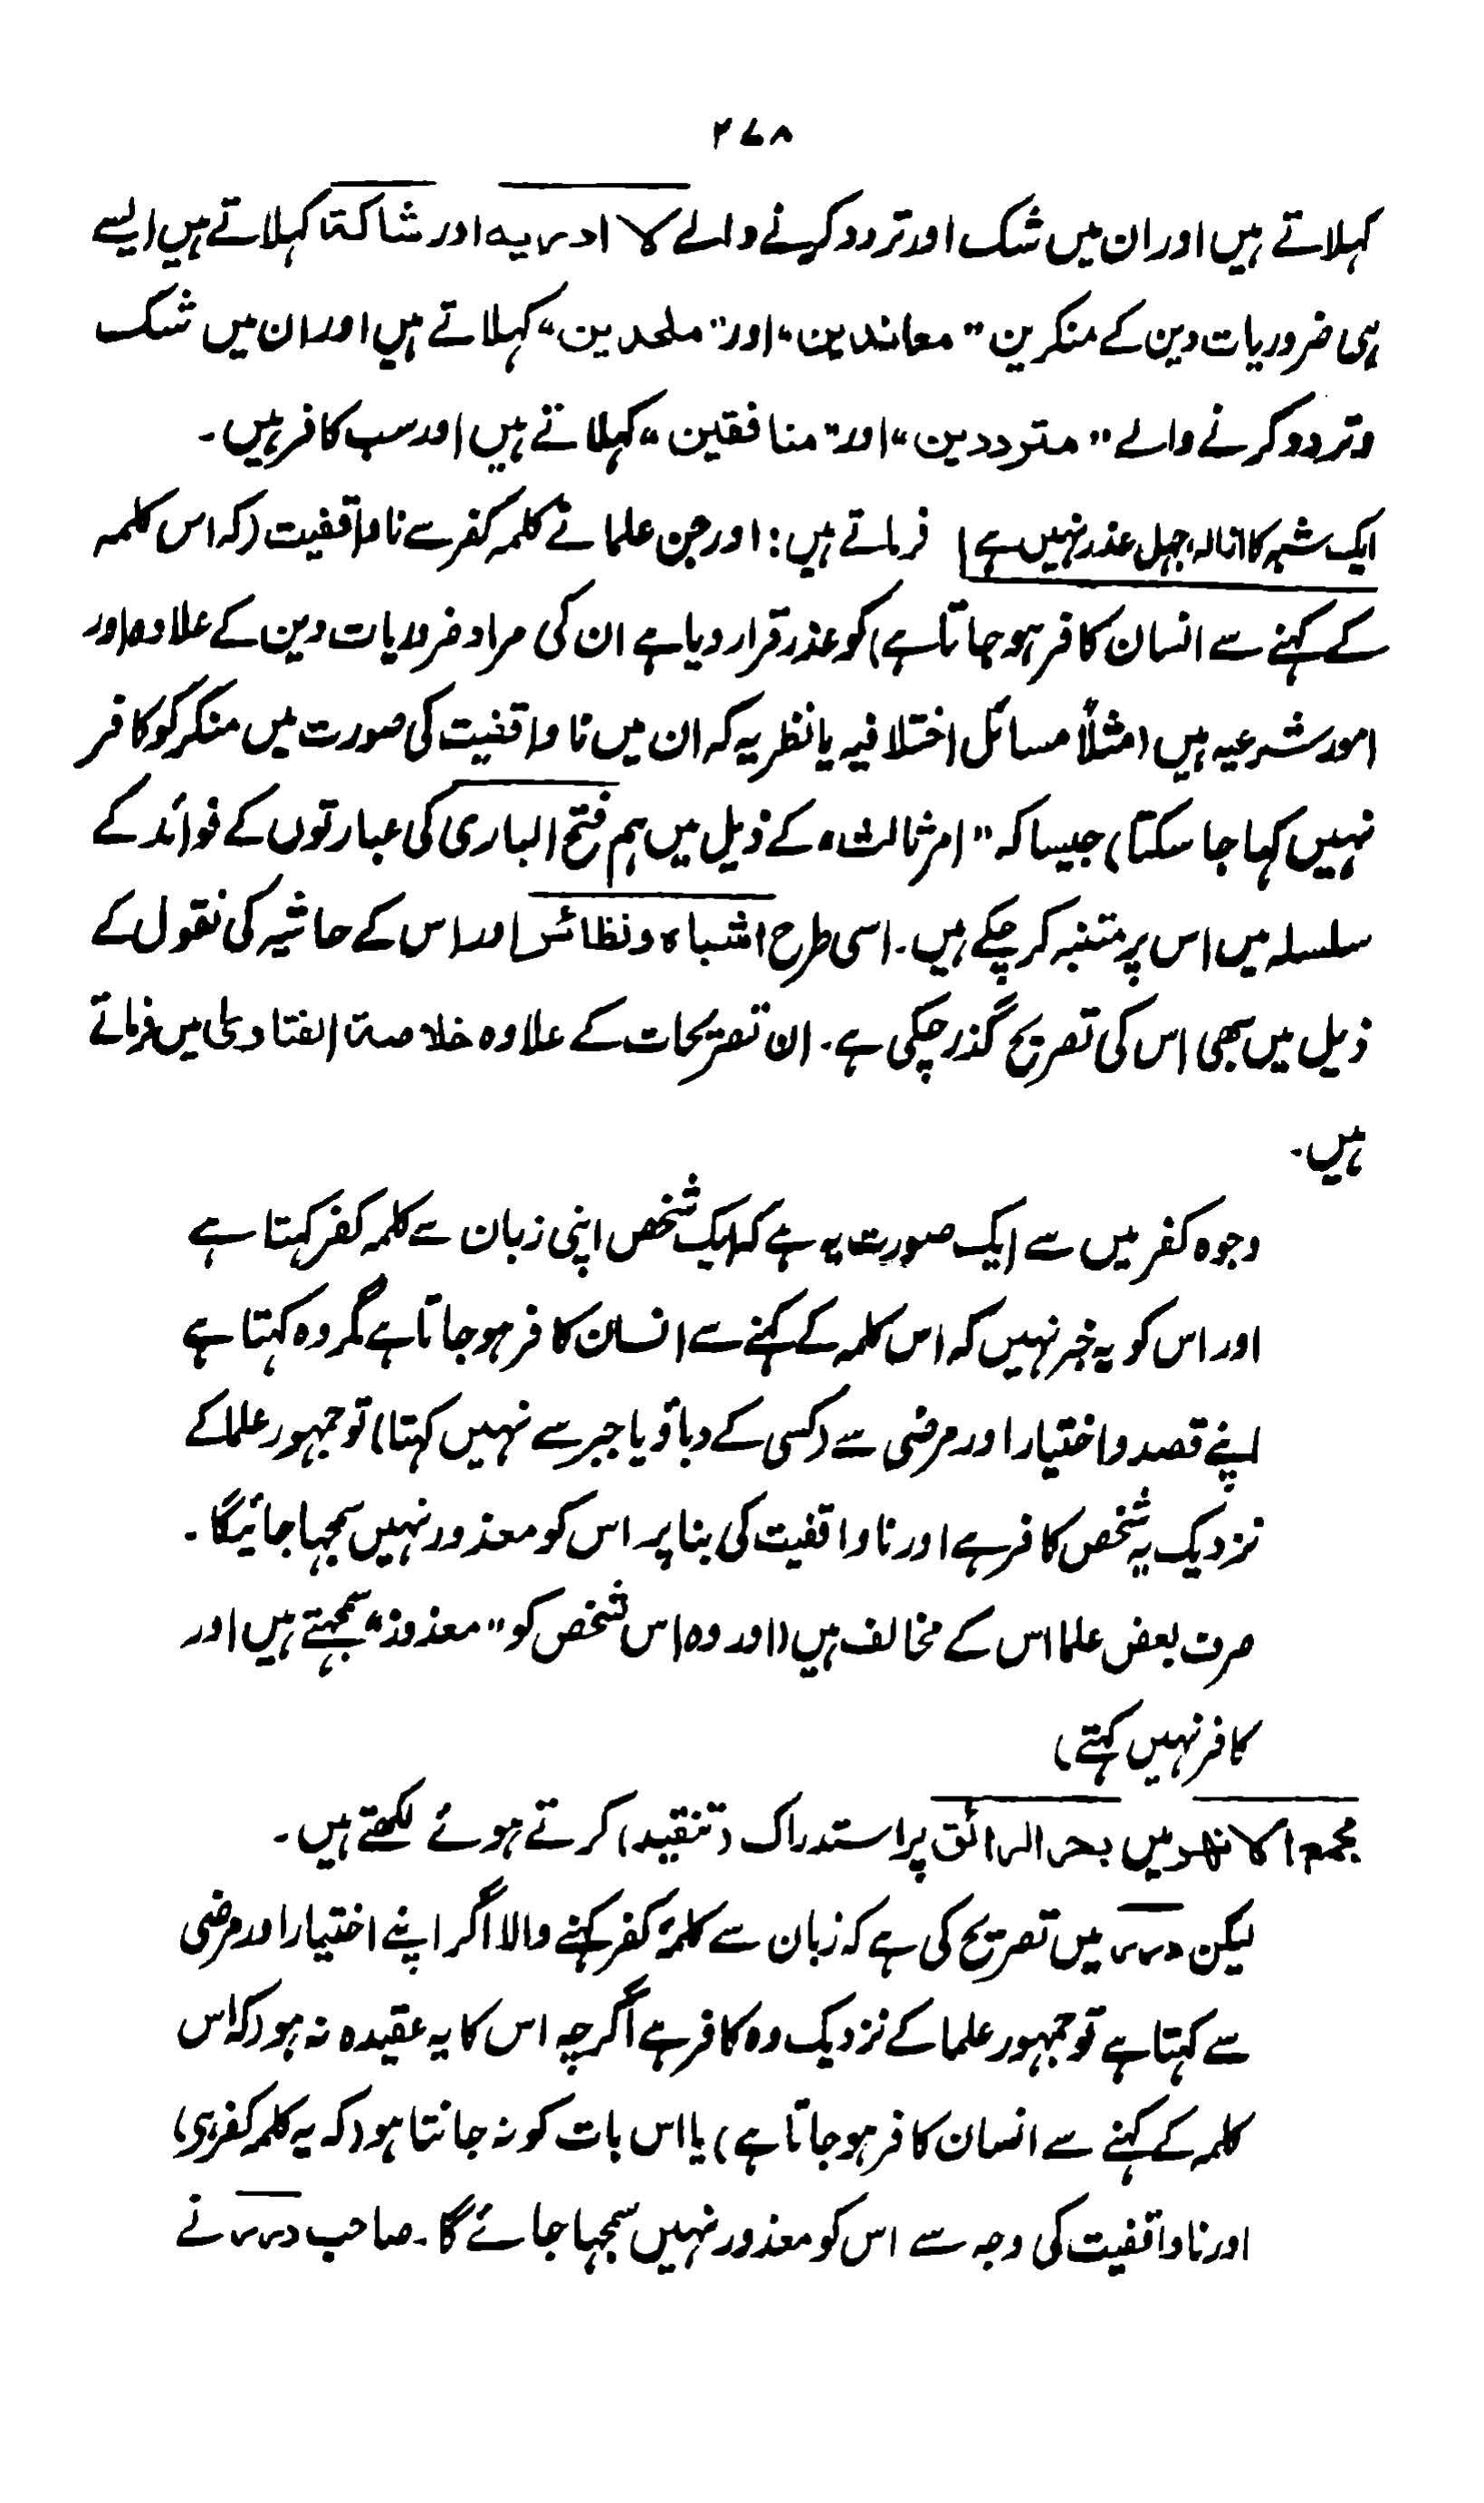 ۲۷۸
کہلاتے ہیں اور ان میں شک اور تردد کرنے والے لا ادریہ اور شاکۃ کہلاتے ہیں ایسے
ہی ضروریات دین کے منکرین "معاندین" اور "ملحدین" کہلاتے ہیں اور ان میں شک
وتردد کرنے والے "مترددین" اور "منافقین" کہلاتے ہیں اور سب کافر ہیں۔
ایک شبہ کا ازالہ، جہل عذر نہیں ہے فرماتے ہیں: اور جن علما نے کلمہ کفر سے ناواقفیت (کہ اس کلمہ
کے کہنے سے انسان کافر ہو جاتا ہے) کو عذر قرار دیا ہے ان کی مراد ضروریات دین کے علاوہ اور
امور شرعیہ ہیں (مثلاً مسائل اختلافیہ یا نظریہ کہ ان میں ناواقفیت کی صورت میں منکر کو کافر
نہیں کہا جا سکتا) جیسا کہ "امر ثالث" کے ذیل میں ہم فتح الباری کی عبارتوں کے فوائد کے
سلسلہ میں اس پر متنبہ کر چکے ہیں۔ اسی طرح اشباہ ونظائر اور اس کے حاشیہ کی نقول کے
ذیل میں بھی اس کی تصریح گذر چکی ہے۔ ان تصریحات کے علاوہ خلاصۃ الفتاویٰ میں فرماتے
ہیں۔
وجوہ کفر میں سے ایک صورت یہ ہے کہ ایک شخص اپنی زبان سے کلمہ کفر کہتا ہے
اور اس کو یہ خبر نہیں کہ اس کلمہ کے کہنے سے انسان کافر ہو جاتا ہے مگر وہ کہتا ہے
اپنے قصد واختیار اور مرضی سے (کسی کے دباؤ یا جبر سے نہیں کہتا) تو جمہور علما کے
نزدیک یہ شخص کافر ہے اور ناواقفیت کی بنا پر اس کو معذور نہیں سمجہا جائیگا۔
صرف بعض علما اس کے مخالف ہیں (اور وہ اس شخص کو "معذور" سمجہتے ہیں اور
کافر نہیں کہتے)
مجمع الانھر میں بحر الرائق پر استدراک (تنقید) کرتے ہوئے لکھتے ہیں۔
لیکن درر میں تصریح کی ہے کہ زبان سے کلمۂ کفر کہنے والا اگر اپنے اختیار اور مرضی
سے کہتا ہے تو جمہور علما کے نزدیک وہ کافر ہے اگرچہ اس کا یہ عقیدہ نہ ہو (کہ اس
کلمہ کے کہنے سے انسان کافر ہو جاتا ہے) یا اس بات کو نہ جانتا ہو (کہ یہ کلمہ کفر ہی)
اور ناواقفیت کی وجہ سے اس کو معذور نہیں سمجہا جائے گا۔ صاحب درر نے